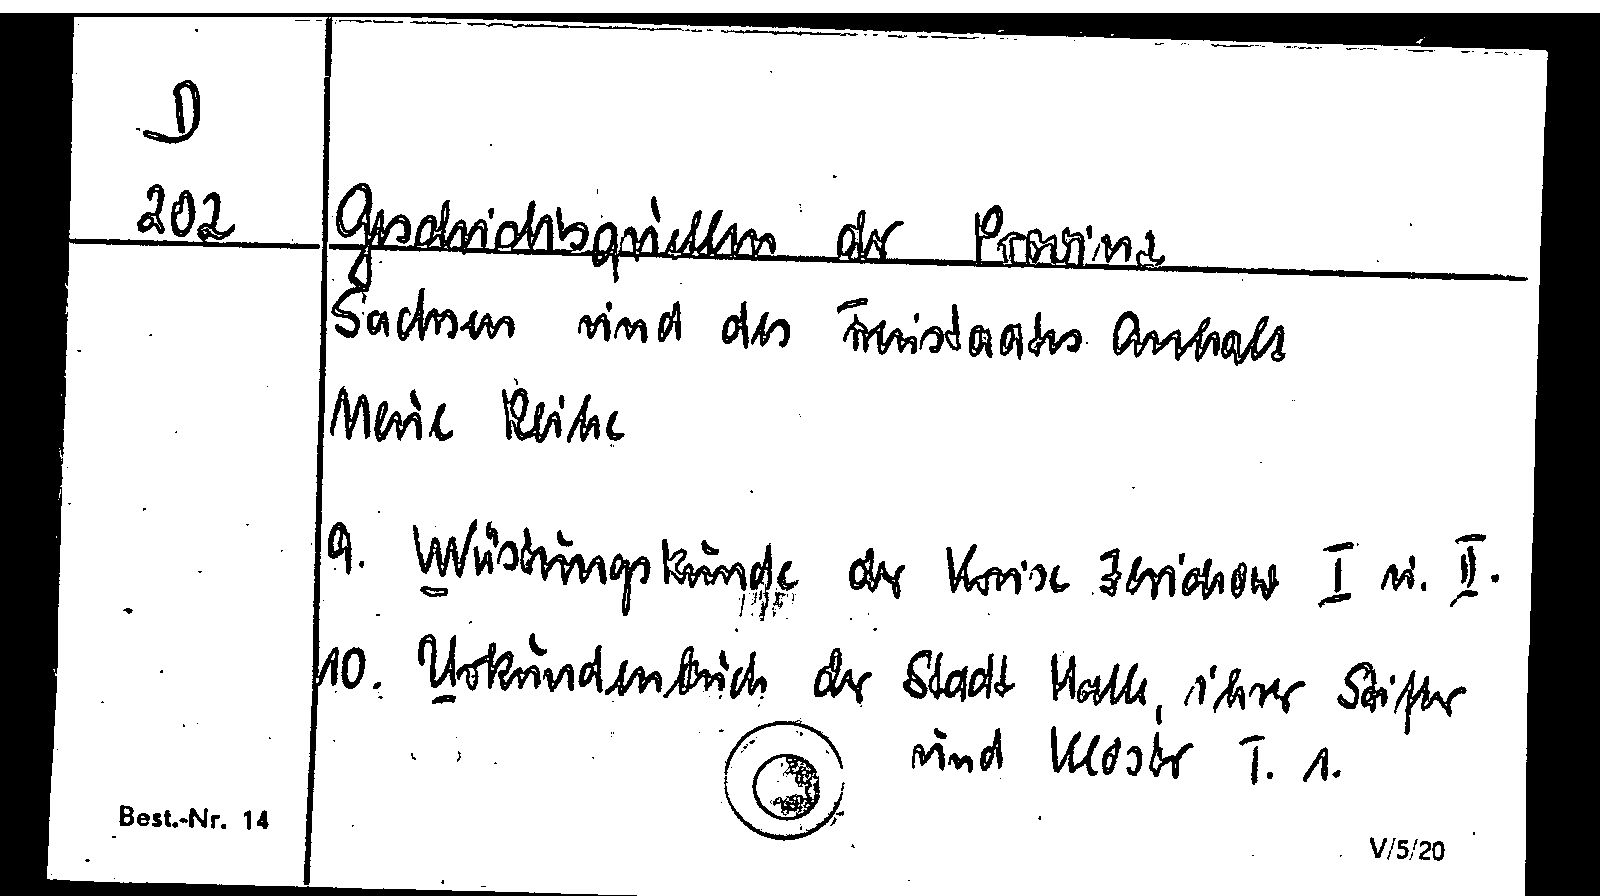 D
202
Geschichtsquellen der Provinz
Sachsen und des Freistaates Anhalt
Neue Reihe
9. Wüstungskunde der Kreise Jerichow I u. II.
10. Urkundenbuch der Stadt Halle, ihrer Stifter
und Klöster T. 1.
Best.-Nr. 14
V/5/20